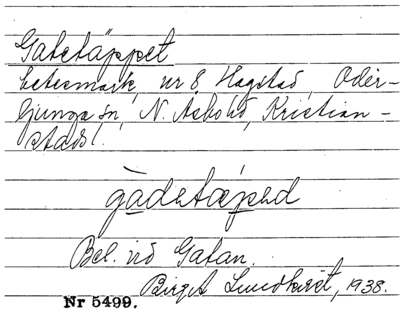 Gatetäppet
betesmark, nr 8 Hagstad, Oder-
ljunga sn, N. Åsbo hd, Kristian-
stads l.
gàdetäpəd
Bel. vid Gatan.
Birgit Lundkvist, 1938.
Nr 5499.